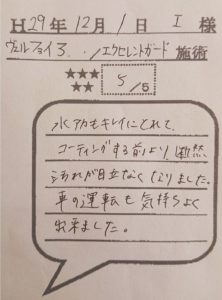 H29年12月1日 I 様
ヴェルファイア、/エクセレントガード 施術
★★★
★★
5/5
水アカもキレイにとれて、
コーティングする前より断然
汚れが目立なくなりました。
車の運転も気持ちよく
出来ました。